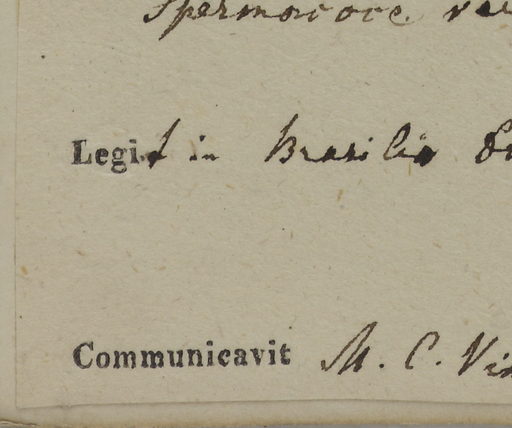 Spermacoce
Legit in Brasilia
Communicavit M. C.